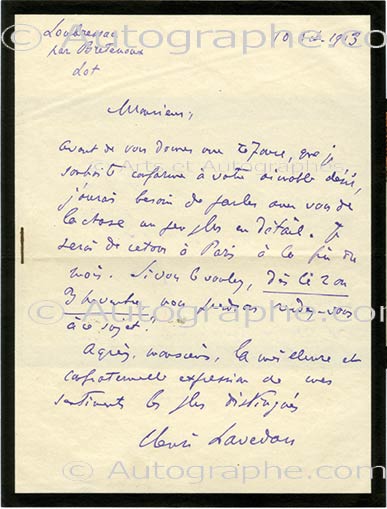 Loubressac
par Bretenoux
Lot
10 1913
Monsieur,
avant de vous donner une réponse, que je
conforme à votre aimable désir,
j'aurai besoin de parler avec vous de
la chose un peu plus en détail. Je
serai de retour à Paris à la fin du
mois. Si vous le voulez, dès le 2 ou
3 novembre, nous prendrons rendez-vous
à ce sujet.
Agréez, monsieur, la meilleure et
expression de mes
sentiments les plus distingués
Henri Lavedan
© Autographe.com
© Arts et Autographes
© Autographe.com
© Autographe.com
© Autographe.com